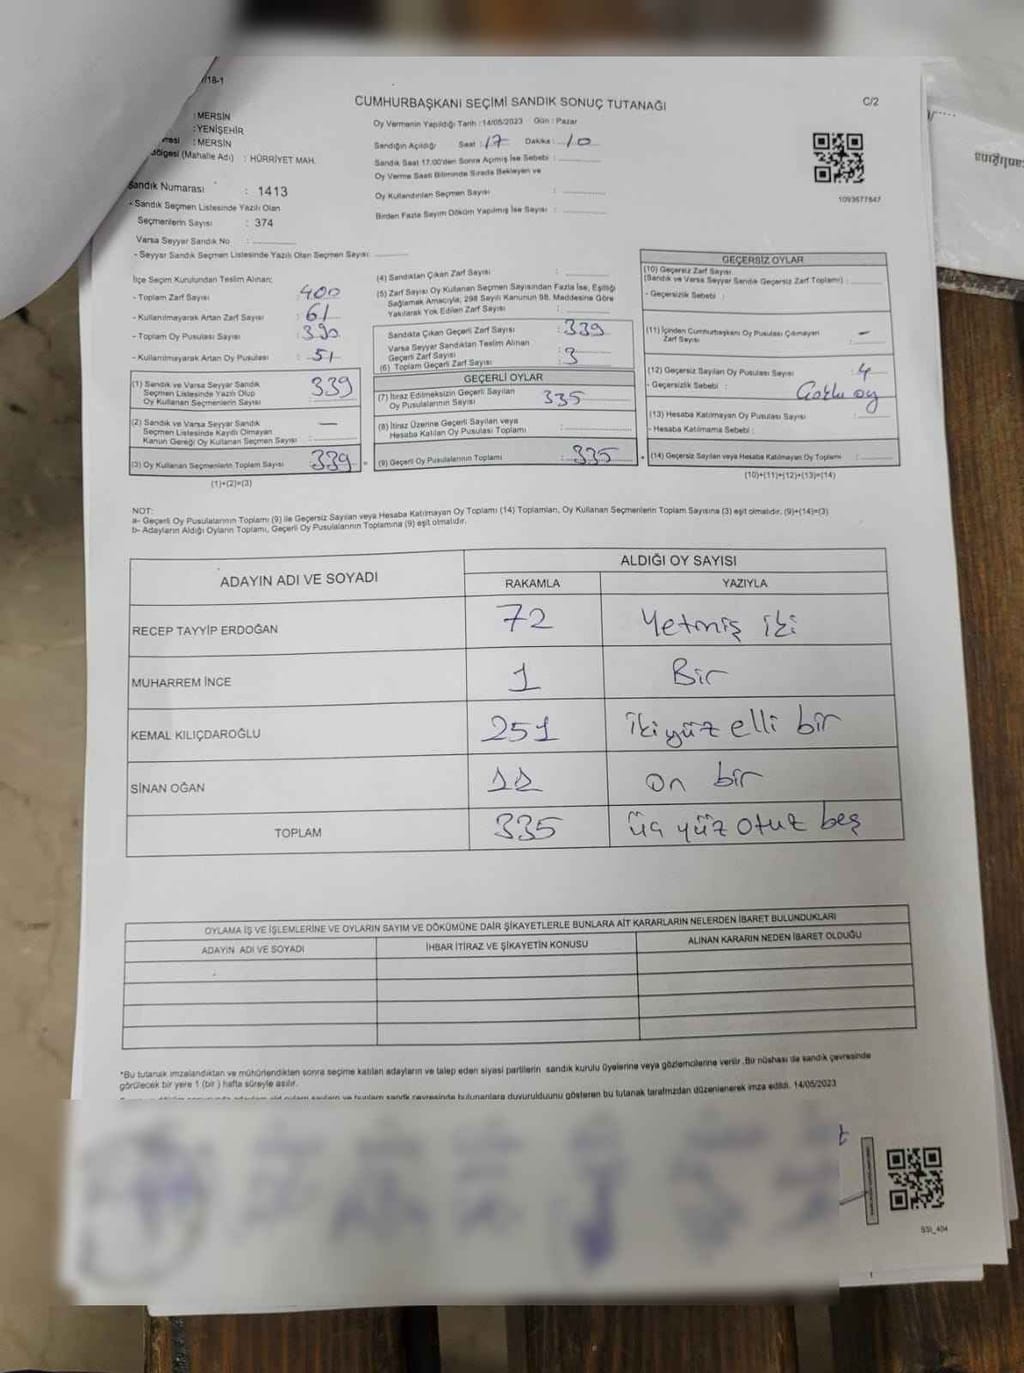 /18-1
CUMHURBAŞKANI SEÇİMİ SANDIK SONUÇ TUTANAĞI
C/2
: MERSİN
: YENİŞEHİR
: MERSİN
(Mahalle Adı) : HÜRRİYET MAH.
Sandık Numarası : 1413
- Sandık Seçmen Listesinde Yazılı Olan
Seçmenlerin Sayısı : 374
Varsa Seyyar Sandık No :
- Seyyar Sandık Seçmen Listesinde Yazılı Olan Seçmen Sayısı :
Oy Vermenin Yapıldığı Tarih : 14/05/2023 Gün : Pazar
Sandığın Açıldığı Saat : 17 Dakika : 10
Sandık Saat 17:00'den Sonra Açılmış İse Sebebi :
Oy Verme Saati Bitiminde Sırada Bekleyen ve
Oy Kullandırılan Seçmen Sayısı :
Birden Fazla Sayım Döküm Yapılmış İse Sayısı :
1093677847
İlçe Seçim Kurulundan Teslim Alınan:
- Toplam Zarf Sayısı : 400
- Kullanılmayarak Artan Zarf Sayısı : 61
- Toplam Oy Pusulası Sayısı : 390
- Kullanılmayarak Artan Oy Pusulası : 51
(1) Sandık ve Varsa Seyyar Sandık
Seçmen Listesinde Yazılı Olup
Oy Kullanan Seçmenlerin Sayısı : 339
(2) Sandık ve Varsa Seyyar Sandık
Seçmen Listesinde Kayıtlı Olmayan
Kanun Gereği Oy Kullanan Seçmen Sayısı : —
(3) Oy Kullanan Seçmenlerin Toplam Sayısı : 339
(1)+(2)=(3)
(4) Sandıktan Çıkan Zarf Sayısı :
(5) Zarf Sayısı Oy Kullanan Seçmen Sayısından Fazla İse, Eşitliği
Sağlamak Amacıyla, 298 Sayılı Kanunun 98. Maddesine Göre
Yakılarak Yok Edilen Zarf Sayısı :
Sandıkta Çıkan Geçerli Zarf Sayısı : 339
Varsa Seyyar Sandıktan Teslim Alınan
Geçerli Zarf Sayısı : 3
(6) Toplam Geçerli Zarf Sayısı :
GEÇERLİ OYLAR
(7) İtiraz Edilmeksizin Geçerli Sayılan
Oy Pusulalarının Sayısı 335
(8) İtiraz Üzerine Geçerli Sayılan veya
Hesaba Katılan Oy Pusulası Toplamı :
(9) Geçerli Oy Pusulalarının Toplamı : 335
GEÇERSİZ OYLAR
(10) Geçersiz Zarf Sayısı
(Sandık ve Varsa Seyyar Sandık Geçersiz Zarf Toplamı) :
- Geçersizlik Sebebi :
(11) İçinden Cumhurbaşkanı Oy Pusulası Çıkmayan
Zarf Sayısı : —
(12) Geçersiz Sayılan Oy Pusulası Sayısı : 4
- Geçersizlik Sebebi : oy
(13) Hesaba Katılmayan Oy Pusulası Sayısı :
- Hesaba Katılmama Sebebi :
(14) Geçersiz Sayılan veya Hesaba Katılmayan Oy Toplamı :
(10)+(11)+(12)+(13)=(14)
NOT:
a- Geçerli Oy Pusulalarının Toplamı (9) ile Geçersiz Sayılan veya Hesaba Katılmayan Oy Toplamı (14) Toplamları, Oy Kullanan Seçmenlerin Toplam Sayısına (3) eşit olmalıdır. (9)+(14)=(3)
b- Adayların Aldığı Oyların Toplamı, Geçerli Oy Pusulalarının Toplamına (9) eşit olmalıdır.
ADAYIN ADI VE SOYADI
ALDIĞI OY SAYISI
RAKAMLA YAZIYLA
RECEP TAYYİP ERDOĞAN 72 Yetmiş iki
MUHARREM İNCE 1 Bir
KEMAL KILIÇDAROĞLU 251 iki yüz elli bir
SİNAN OĞAN 11 On bir
TOPLAM 335 üç yüz otuz beş
OYLAMA İŞ VE İŞLEMLERİNE VE OYLARIN SAYIM VE DÖKÜMÜNE DAİR ŞİKAYETLERLE BUNLARA AİT KARARLARIN NELERDEN İBARET BULUNDUKLARI
ADAYIN ADI VE SOYADI İHBAR İTİRAZ VE ŞİKAYETİN KONUSU ALINAN KARARIN NEDEN İBARET OLDUĞU
*Bu tutanak imzalandıktan ve mühürlendikten sonra seçime katılan adayların ve talep eden siyasi partilerin sandık kurulu üyelerine veya gözlemcilerine verilir. Bu nüshası da sandık çevresinde
görülecek bir yere 1 (bir) hafta süreyle asılır.
duyurulduğunu gösteren bu tutanak tarafımızdan düzenlenerek imza edildi. 14/05/2023
SSI_404
1